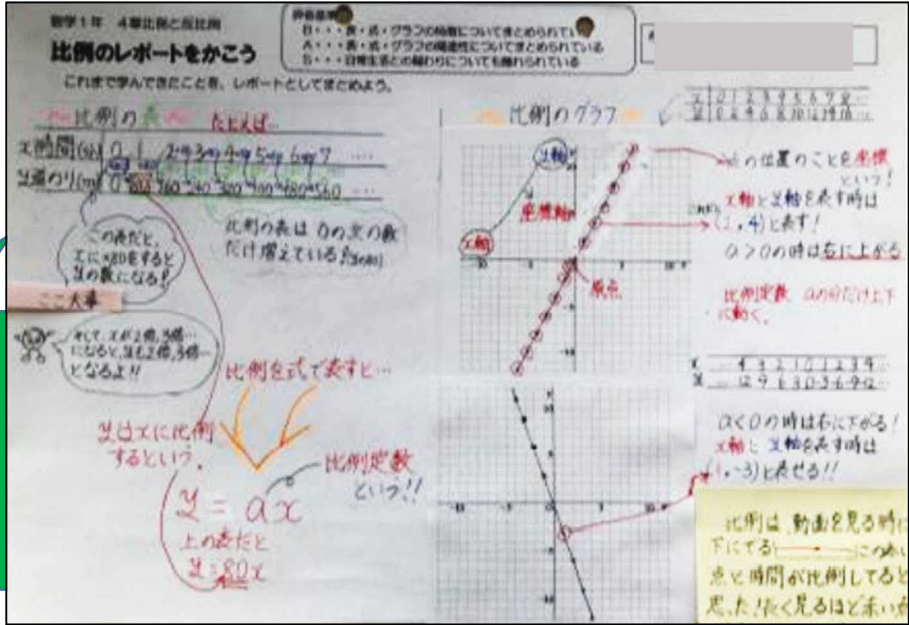 数学1年 4章比例と反比例
比例のレポートをかこう
これまで学んできたことを、レポートとしてまとめよう。
評価基準
B・・・表・式・グラフの特徴についてまとめられている
A・・・表・式・グラフの関連性についてまとめられている
S・・・日常生活との関わりについても触れられている
比例の表
たとえば…
x時間(分) 0 1 2 3 4 5 6 7 ……
y道のり(m) 0 80 160 240 320 400 480 560 ……
この表だと、
xに×80をすると
yの数になる!
比例の表は 0の次の数
だけ増えている!
ここ大事
そして、xが2倍,3倍…
になると、yも2倍,3倍…
となるよ!!
比例を式で表すと…
yはxに比例
するという。
y=ax
比例定数
という!!
上の表だと
y=80x
比例のグラフ
x 0 1 2 3 4 5 6 7 8
y 0 2 4 6 8 10 12 14 16
y軸
座標軸
x軸
原点
の位置のことを座標
という!
x軸とy軸を表す時は
(2,4)と表す!
a>0の時は右に上がる
比例定数 aの分だけ上下
に動く。
x 4 3 2 1 0 1 2 3 4
y 12 9 6 3 0 -3 -6 -9 -12
a<0の時は右に下がる!
x軸とy軸を表す時は
(1,-3)と表せる!!
比例は 動画を見る時に
下にでる この赤い
点と時間が比例してると
思った!長く見るほど赤い点